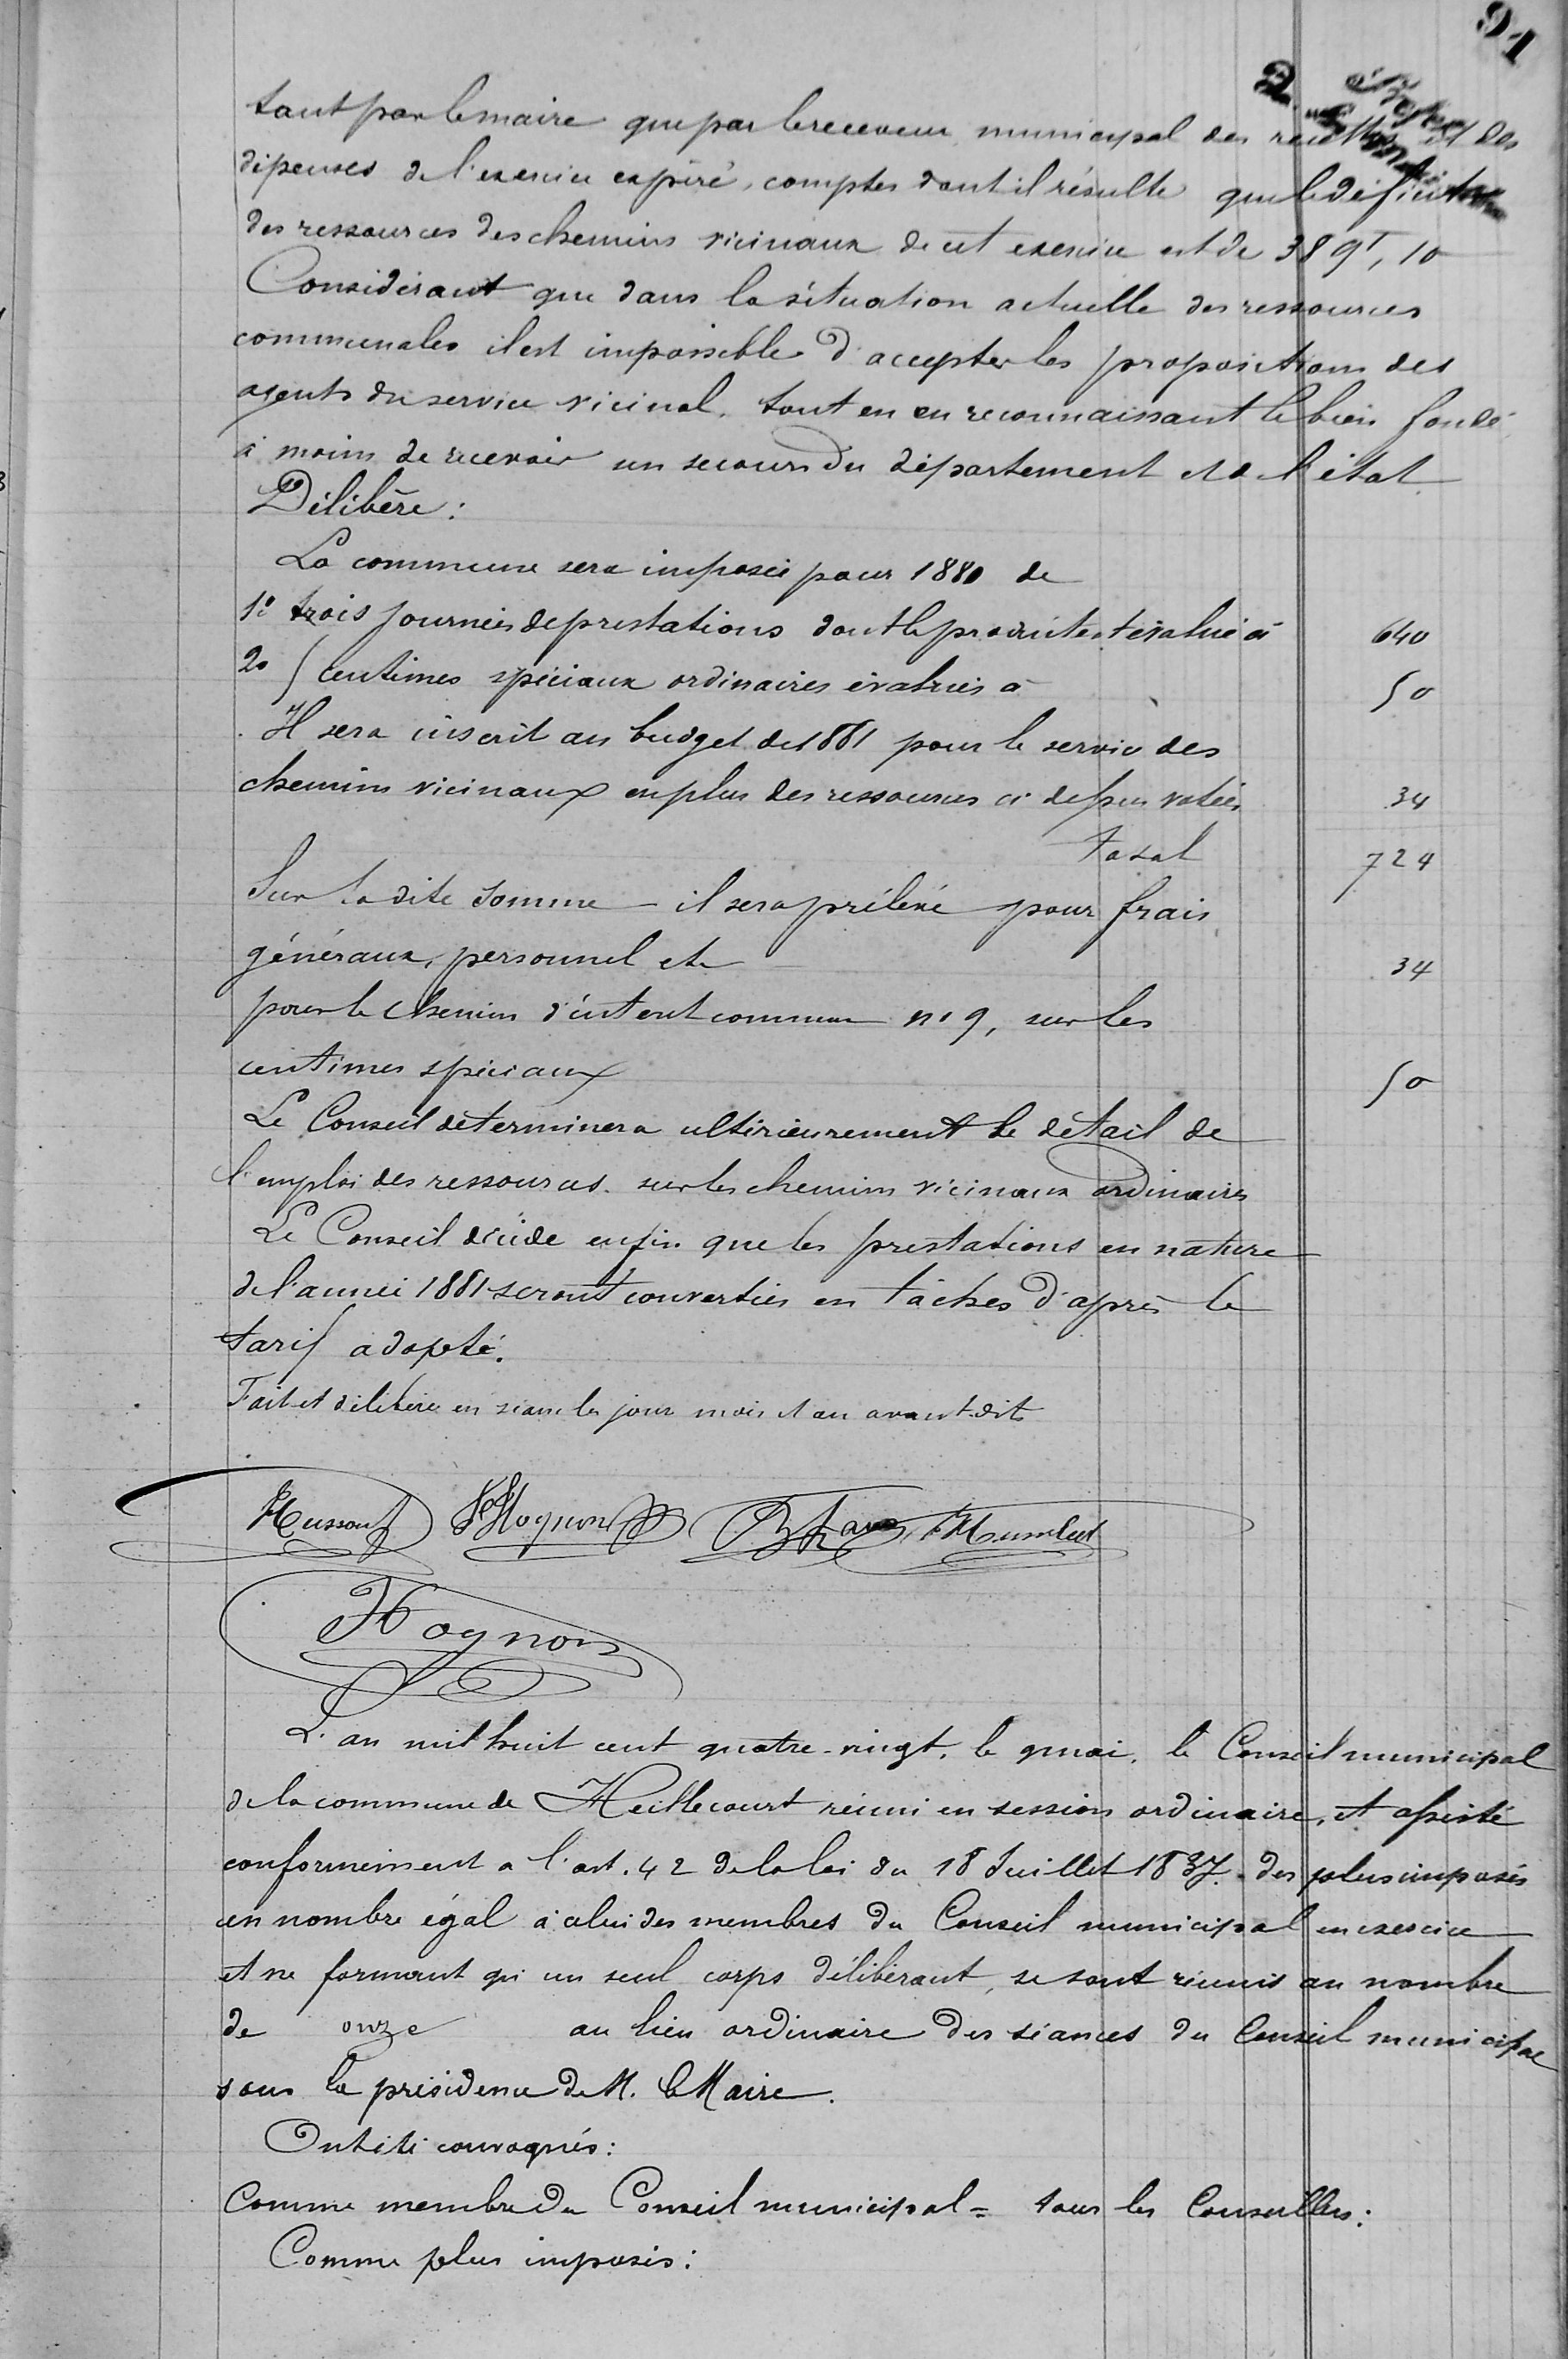 91
2.
tant par le maire que par le receveur municipal des recettes et des
dépenses de l'exercice expiré, comptes dont il résulte que le déficit
des ressources des chemins vicinaux de cet exercice est de 389f, 10
Considérant que dans la situation actuelle des ressources
communales il est impossible d'accepter les propositions des
agents du service vicinal, tout en en reconnaissant le bien fondé
à moins de recevoir un secours du département et de l'état
Délibère :
La commune sera imposée pour 1880 de
1° trois journées de prestations dont le produit est évalué à 640
2° 5 centimes spéciaux ordinaires évalués à 50
Il sera inscrit au budget de 1881 pour le service des
chemins vicinaux en plus des ressources ci dessus votées 34
total 724
Sur la dite somme - il sera prélévé pour frais
généraux, personnel etc 34
pour le chemin d'intérêt commun n° 9, sur les
centimes spéciaux 50
Le Conseil déterminera ultérieurement le détail de
l'emploi des ressources sur les chemins vicinaux ordinaires
Le Conseil décide enfin que les prestations en nature
de l'année 1881 seront converties en tâches d'après le
tarif adopté.
Fait et délibéré en séance les jour mois et an avant dit
Husson Hognon Humbert
Hognon
L'an mil huit cent quatre-vingt, le 9 mai, le Conseil municipal
de la commune de Heillecourt réuni en session ordinaire, et assisté
conformément a l'art. 42 de la loi du 18 Juillet 1837. des plus imposés
en nombre égal à celui des membres du Conseil municipal en exercice
et ne formant qu'un seul corps délibérant, se sont réunis au nombre
de onze au lieu ordinaire des séances du Conseil municipal
sous la présidence de M. le Maire.
Ont été convoqués :
Comme membre du Conseil municipal = tous les Conseillers :
Comme plus imposés :